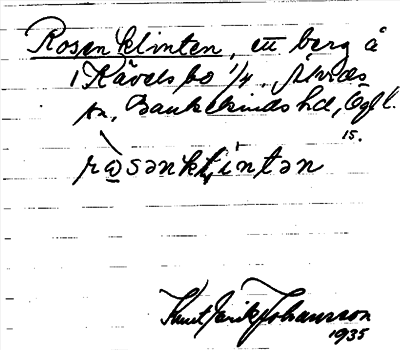 Rosenklinten, ett berg å
1 Kävelsbo 1/4. Åtvids
sn, Bankekinds hd, Ög l.
15.
rɷsənkḷintən
Knut Erik Johansson
1935